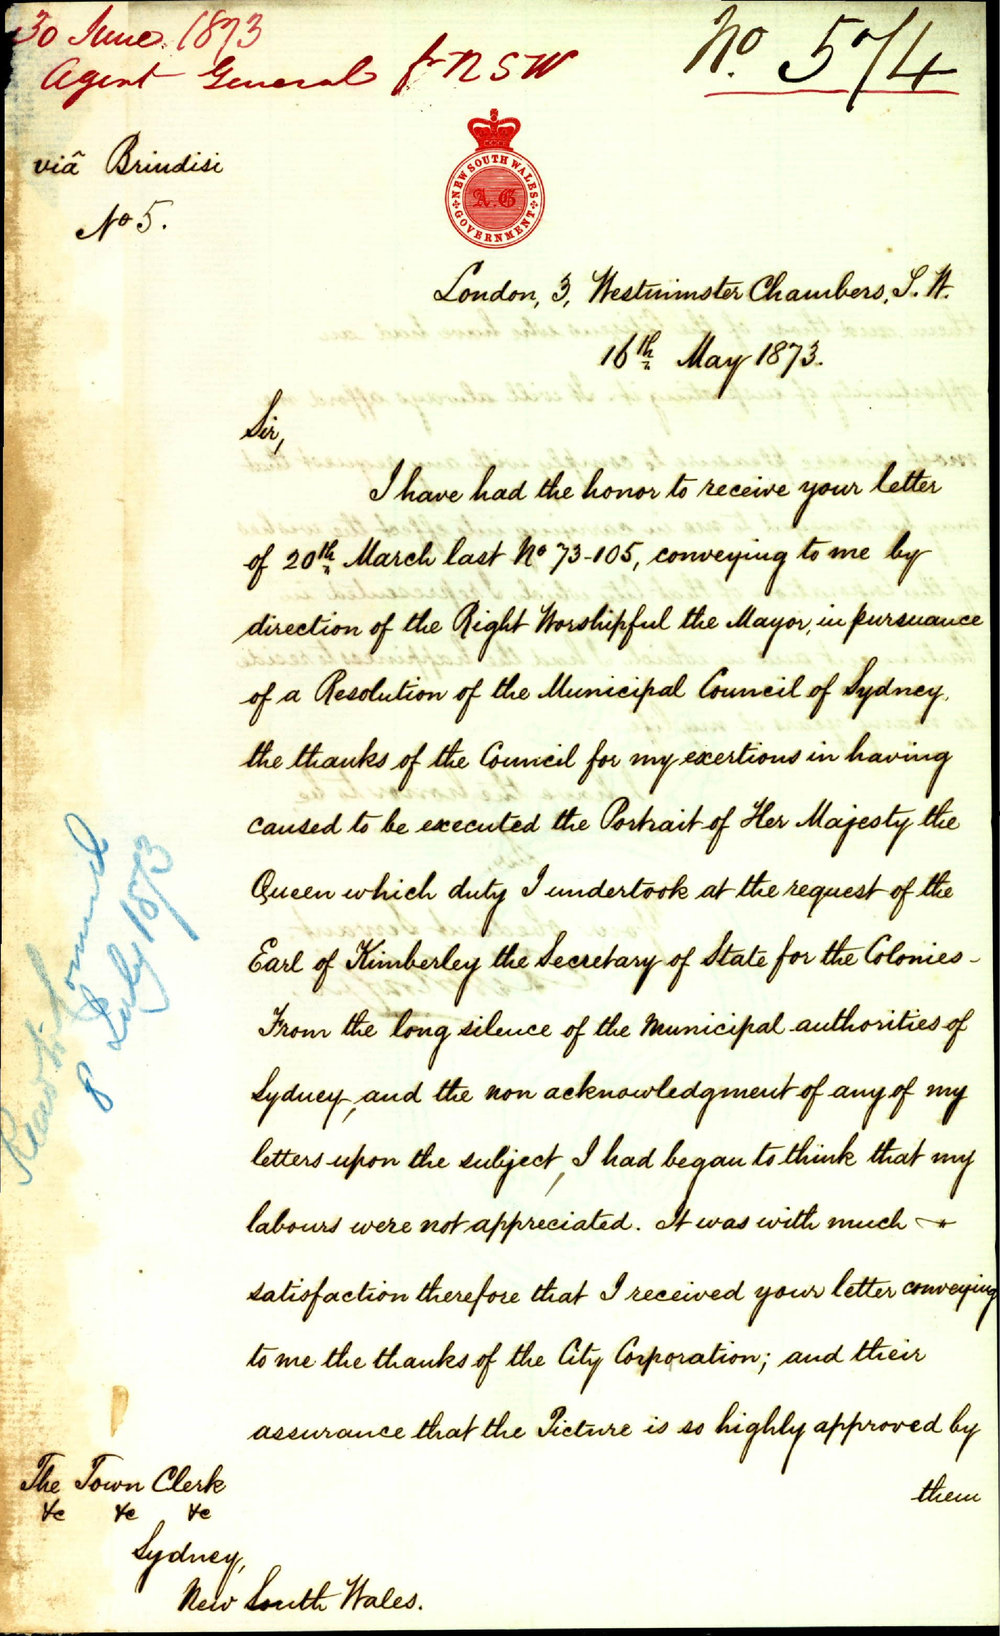 30 June 1873
Agent General for NSW
No. 574
viâ Brindisi
No 5.
NEW SOUTH WALES
A.G
GOVERNMENT
London, 3, Westminster Chambers, S. W.
16th May 1873.
Sir,
I have had the honor to receive your letter
of 20th March last No 73-105, conveying to me by
direction of the Right Worshipful the Mayor, in pursuance
of a Resolution of the Municipal Council of Sydney,
the thanks of the Council for my exertions in having
caused to be executed the Portrait of Her Majesty the
Queen which duty I undertook at the request of the
Earl of Kimberley the Secretary of State for the Colonies -
From the long silence of the Municipal authorities of
Sydney, and the non acknowledgment of any of my
letters upon the subject, I had began to think that my
labours were not appreciated. It was with much
satisfaction therefore that I received your letter conveying
to me the thanks of the City Corporation; and their
assurance that the Picture is so highly approved by
them
Council
8 July 1873
The Town Clerk
&c &c &c
Sydney,
New South Wales.